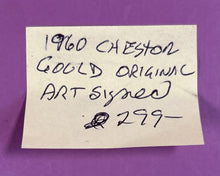 1960 CHESTOR
GOULD ORIGINAL
ART Signed
299-